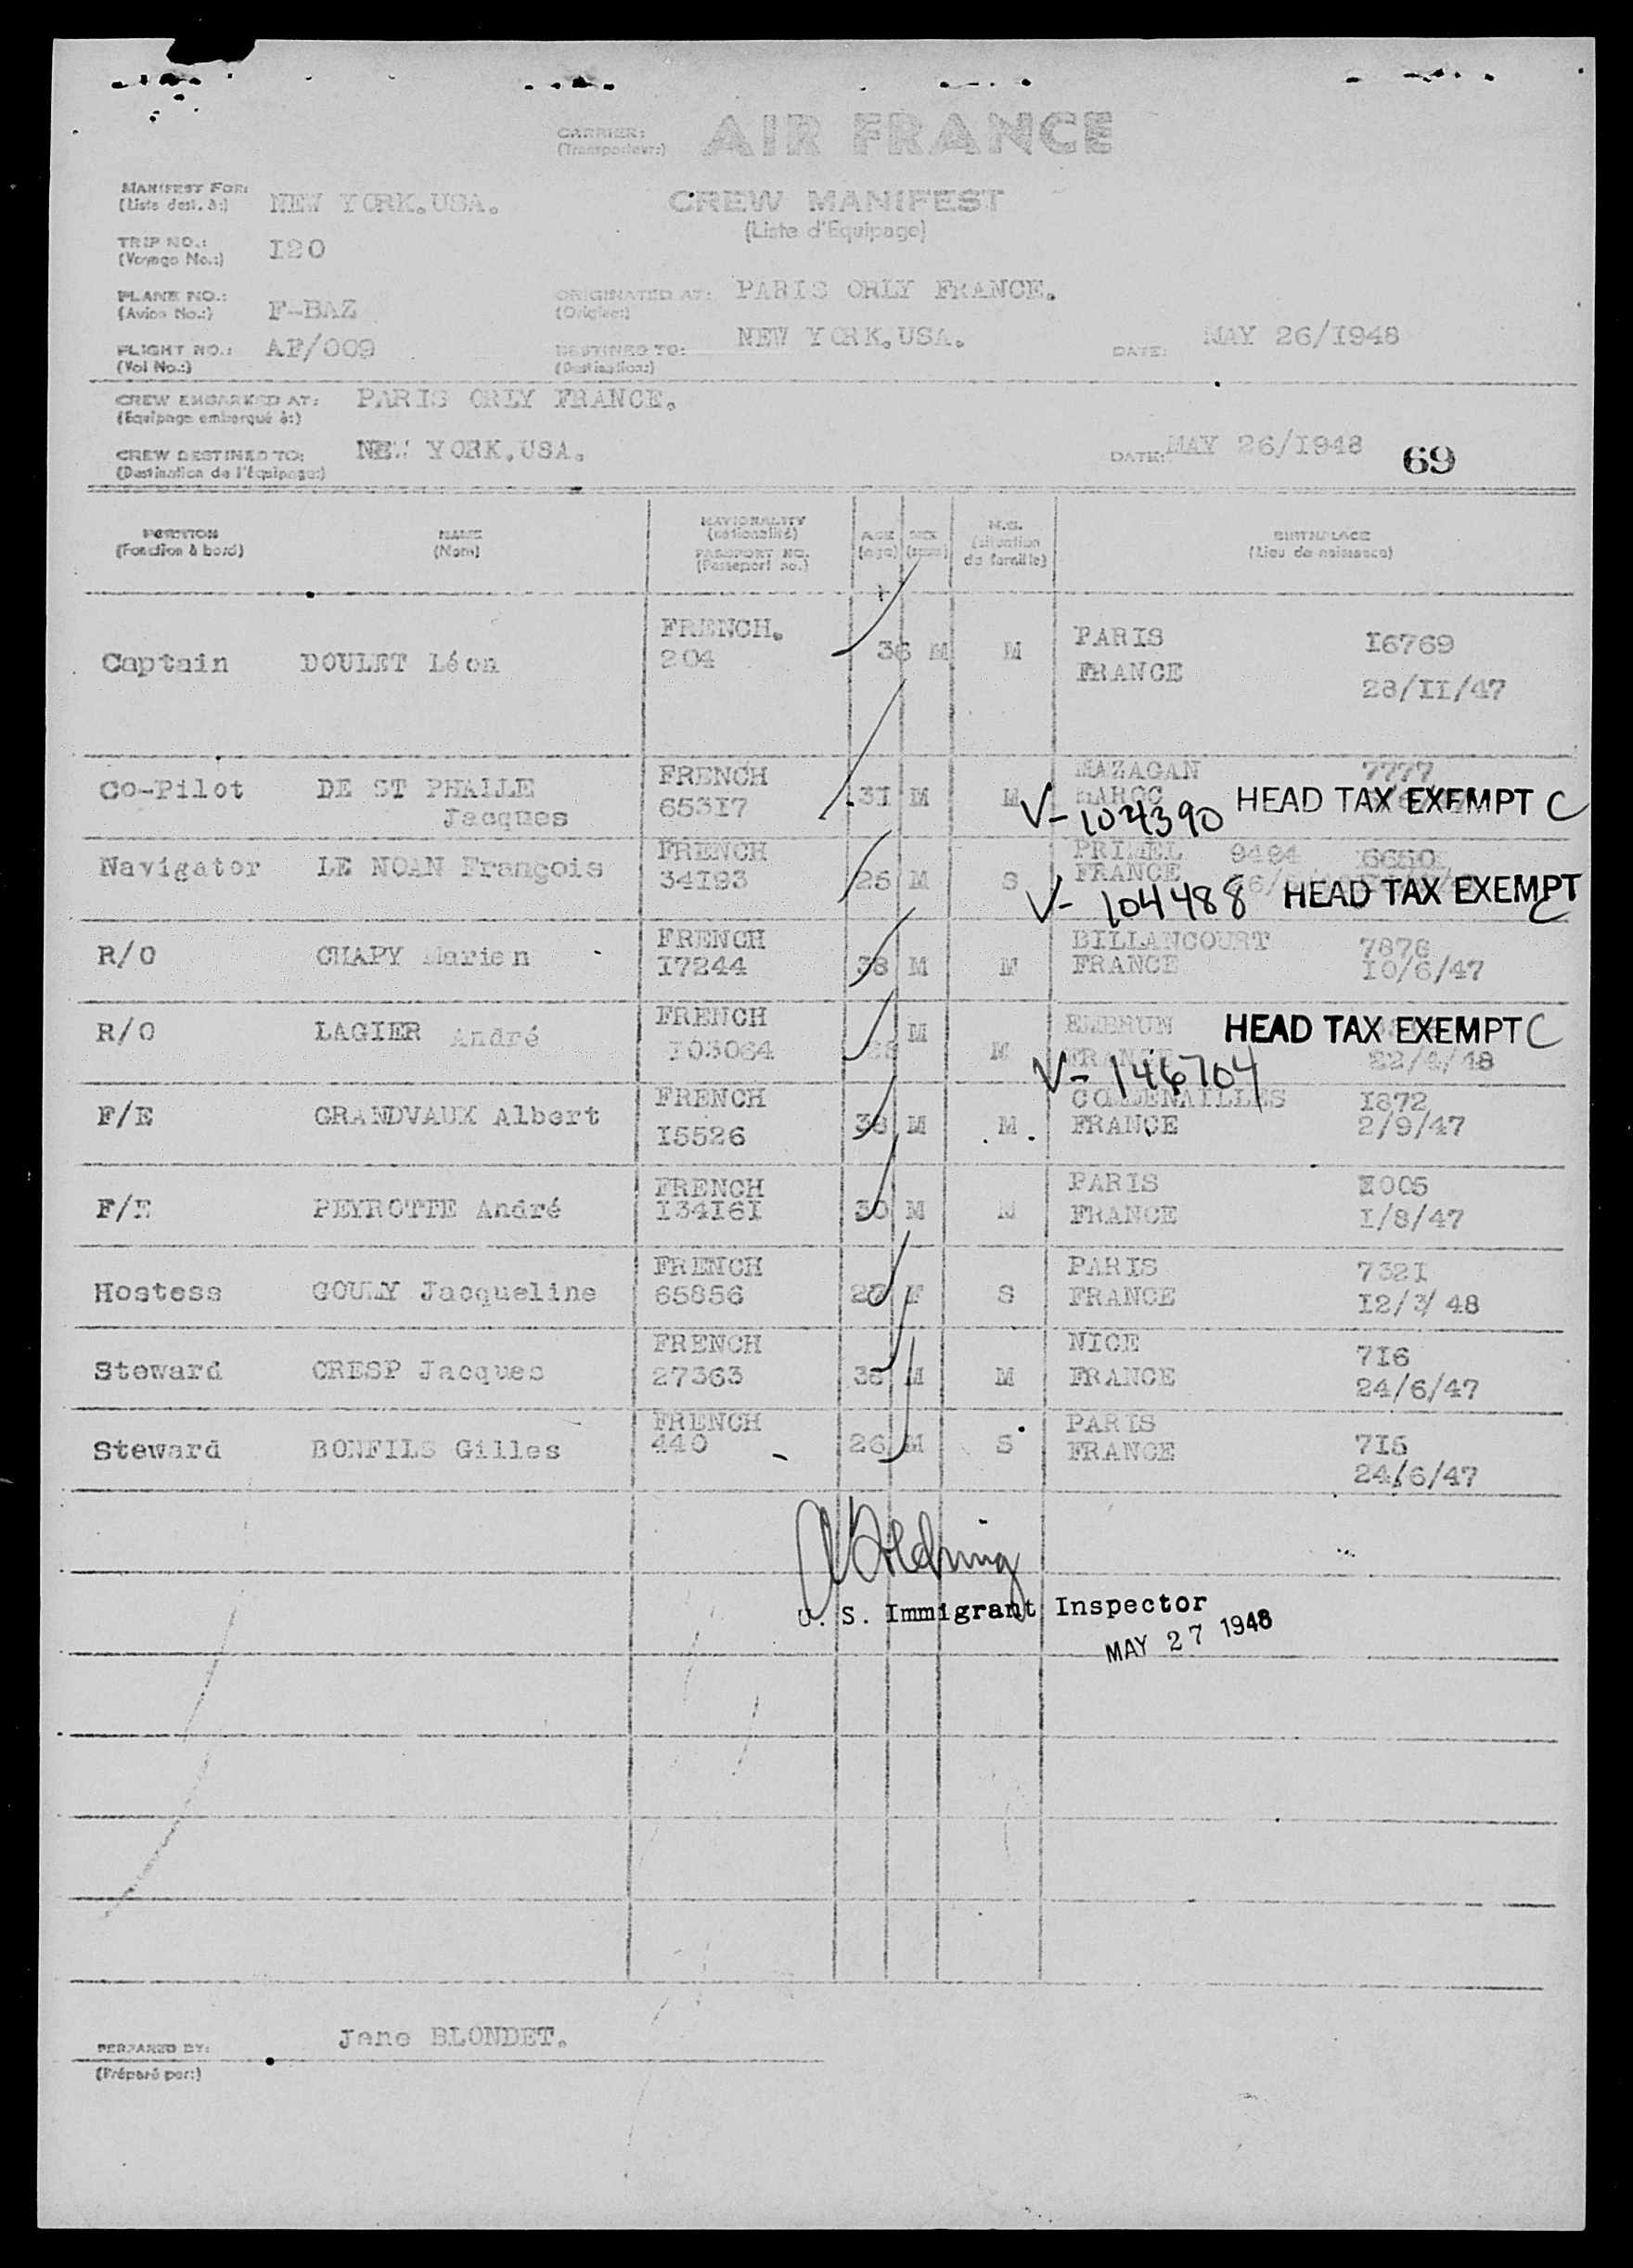 CARRIER: AIR FRANCE
(Transporteur:)
MANIFEST FOR: NEW YORK.USA. CREW MANIFEST
(Liste dest. à:) (Liste d'Equipage)
TRIP NO.: I20
(Voyage No.:)
PLANE NO.: F-BAZ ORIGINATED AT: PARIS ORLY FRANCE.
(Avion No.:) (Origine:)
FLIGHT NO.: AF/009 DESTINED TO: NEW YORK,USA. DATE: MAY 26/I948
(Vol No.:) (Destination:)
CREW EMBARKED AT: PARIS ORLY FRANCE.
(Equipage embarqué à:)
CREW DESTINED TO: NEW YORK,USA. DATE: MAY 26/I948 69
(Destination de l'Equipage:)
POSITION NAME NATIONALITY AGE SEX M.S. BIRTHPLACE
(Fonction à bord) (Nom) (nationalité) (age) (sexe) (situation de famille) (Lieu de naissance)
PASSPORT NO.
(Passeport no.)
FRENCH. PARIS I6769
Captain DOULET Léon 204 36 M M FRANCE
28/II/47
FRENCH MAZAGAN 7777
Co-Pilot DE ST PHALLE 653I7 3I M M MAROC HEAD TAX EXEMPT C
Jacques V- 104390
FRENCH PRIMEL 9494 6650
Navigator LE NOAN François 34I93 26 M S FRANCE
V- 104488 HEAD TAX EXEMPT C
FRENCH BILLANCOURT 7878
R/O CHAPY Marien I7244 38 M M FRANCE I0/6/47
FRENCH EMBRUN HEAD TAX EXEMPT C
R/O LAGIER André I03064 M M FRANCE 22/4/48
V- 146704
FRENCH I872
F/E GRANDVAUX Albert I5526 38 M M FRANCE 2/9/47
FRENCH PARIS
F/E PEYROTTE André I34I6I 30 M M FRANCE I/8/47
FRENCH PARIS 732I
Hostess Jacqueline 65856 F S FRANCE I2/3/48
FRENCH NICE 7I6
Steward CRESP Jacques 27363 M M FRANCE 24/6/47
FRENCH PARIS
Steward BONFILS Gilles 440 26 M S FRANCE 7I5
24/6/47
U. S. Immigrant Inspector
MAY 27 1948
PREPARED BY: Jane BLONDET.
(Préparé par:)